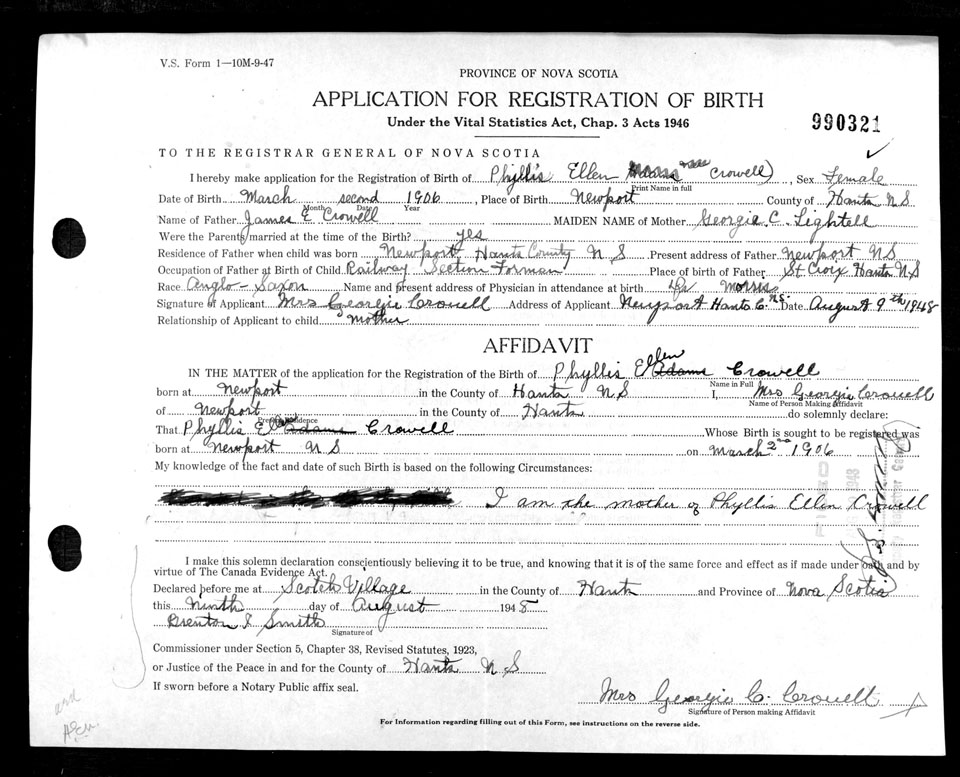 V.S. Form 1—10M-9-47
PROVINCE OF NOVA SCOTIA
APPLICATION FOR REGISTRATION OF BIRTH
Under the Vital Statistics Act, Chap. 3 Acts 1946
990321
TO THE REGISTRAR GENERAL OF NOVA SCOTIA
I hereby make application for the Registration of Birth of Phyllis Ellen Crowell), Sex Female
Print Name in full
Date of Birth March second 1906, Place of Birth Newport County of Hants N S
Month Date Year
Name of Father James E Crowell MAIDEN NAME of Mother Georgie C. Lightell
Were the Parents married at the time of the Birth? yes
Residence of Father when child was born Newport Hants County N S Present address of Father Newport NS
Occupation of Father at Birth of Child Railway Section Forman Place of birth of Father St Croix Hants N S
Race Anglo-Saxon Name and present address of Physician in attendance at birth Dr Morris
Signature of Applicant Mrs Georgie Crowell Address of Applicant Newport Hants C. NS. Date August 9th 1948
Relationship of Applicant to child mother
AFFIDAVIT
IN THE MATTER of the application for the Registration of the Birth of Phyllis Ellen Crowell
Name in Full
born at Newport in the County of Hants N S I, Mrs Georgie Crowell
Name of Person Making Affidavit
of Newport in the County of Hants do solemnly declare:
Present Residence
That Phyllis Ellen Crowell Whose Birth is sought to be registered was
born at Newport N S on March 2nd 1906
My knowledge of the fact and date of such Birth is based on the following Circumstances:
I am the mother of Phyllis Ellen Crowell
I make this solemn declaration conscientiously believing it to be true, and knowing that it is of the same force and effect as if made under oath and by
virtue of The Canada Evidence Act.
Declared before me at Scotch Village in the County of Hants and Province of Nova Scotia
this Ninth day of August 1948
Brenton S Smith
Signature of
Commissioner under Section 5, Chapter 38, Revised Statutes, 1923,
or Justice of the Peace in and for the County of Hants N S
If sworn before a Notary Public affix seal.
Mrs Georgie C. Crowell
Signature of Person making Affidavit
For Information regarding filling out of this Form, see instructions on the reverse side.